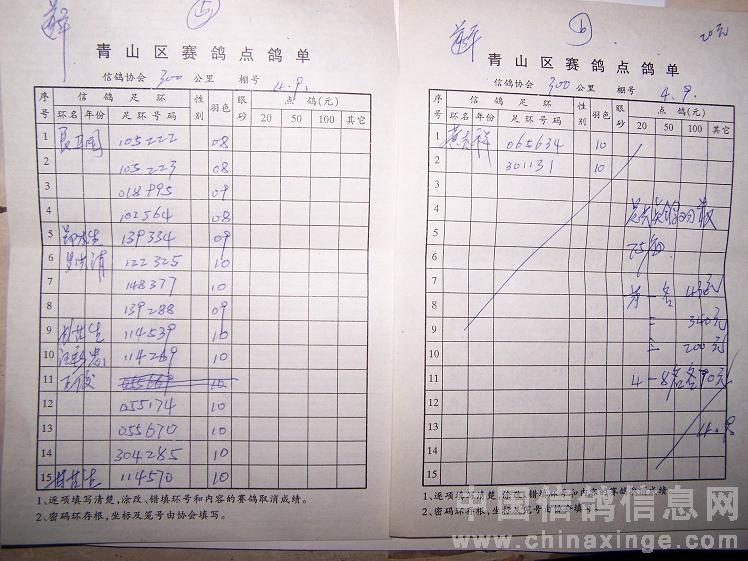 5
青山区赛鸽点鸽单
信鸽协会 300 公里 棚号 4.9.
序号 信鸽足环 性别 羽色 眼砂 点鸽(元)
环名 年份 足环号码 20 50 100 其它
1 105222 08
2 105223 08
3 018895 09
4 102564 08
5 139334 09
6 122325 10
7 148377 10
8 139288 09
9 114539 10
10 114269 10
11 王俊 055669 10
12 055174 10
13 055670 10
14 304285 10
15 114570 10
1、逐项填写清楚,涂改、错填环号和内容的赛鸽取消成绩。
2、密码环存根,坐标及笼号由协会填写。
6
20元
青山区赛鸽点鸽单
信鸽协会 300 公里 棚号 4.9.
序号 信鸽足环 性别 羽色 眼砂 点鸽(元)
环名 年份 足环号码 20 50 100 其它
1 065634 10
2 301131 10
3
4
5
6
7
8 一名
9 二 340元
10 三 200元
11 4-8名各90元
12
13 4.9.
14
15
1、逐项填写清楚,涂改、错填环号和内容的赛鸽取消成绩
2、密码环存根,坐标及笼号由协会填写。
中国信鸽信息网
www.chinaxinge.com